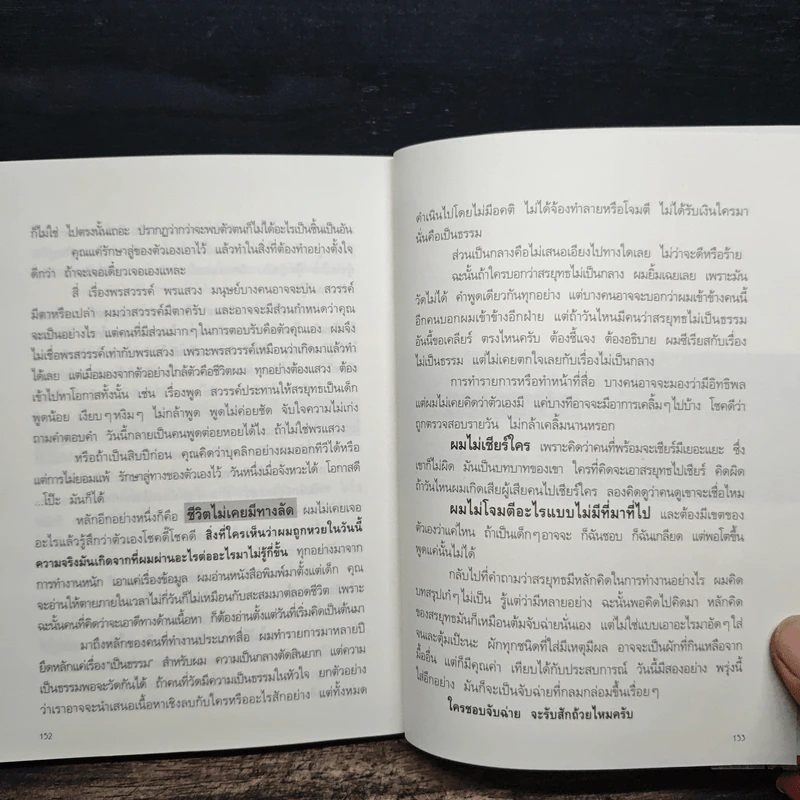 ก็ไม่ใช่ ไปตรงนั้นเถอะ ปรากฏว่ากว่าจะพบตัวตนก็ไม่ได้อะไรเป็นชิ้นเป็นอัน
คุณแค่รักษาลู่ของตัวเองเอาไว้ แล้วทำในสิ่งที่ต้องทำอย่างตั้งใจ
ดีกว่า ถ้าจะเจอเดี๋ยวเจอเองแหละ
สี่ เรื่องพรสวรรค์ พรแสวง มนุษย์บางคนอาจจะบ่น สวรรค์
มีตาหรือเปล่า ผมว่าสวรรค์มีตาครับ และอาจจะมีส่วนกำหนดว่าคุณ
จะเป็นอย่างไร แต่คนที่มีส่วนมากๆในการตอบรับคือตัวคุณเอง ผมจึง
ไม่เชื่อพรสวรรค์เท่ากับพรแสวง เพราะพรสวรรค์เหมือนว่าเกิดมาแล้วทำ
ได้เลย แต่เมื่อมองจากตัวอย่างใกล้ตัวคือชีวิตผม ทุกอย่างต้องแสวง ต้อง
เข้าไปหาโอกาสทั้งนั้น เช่น เรื่องพูด สวรรค์ประทานให้สรยุทธเป็นเด็ก
พูดน้อย เงียบๆหงิมๆ ไม่กล้าพูด พูดไม่ค่อยชัด จับใจความไม่เก่ง
ถามคำตอบคำ วันนี้กลายเป็นคนพูดต่อยหอยได้ไง ถ้าไม่ใช่พรแสวง
หรือถ้าเป็นสิบปีก่อน คุณคิดว่าบุคลิกอย่างผมออกทีวีได้หรือ
แต่การไม่ยอมแพ้ รักษาลู่ทางของตัวเองไว้ วันหนึ่งเมื่อจังหวะได้ โอกาสดี
...โป๊ะ มันก็ได้
หลักอีกอย่างหนึ่งก็คือ ชีวิตไม่เคยมีทางลัด ผมไม่เคยเจอ
อะไรแล้วรู้สึกว่าตัวเองโชคดี๊โชคดี สิ่งที่ใครเห็นว่าผมถูกหวยในวันนี้
ความจริงมันเกิดจากที่ผมผ่านอะไรต่ออะไรมาไม่รู้กี่ขั้น ทุกอย่างมาจาก
การทำงานหนัก เอาแค่เรื่องข้อมูล ผมอ่านหนังสือพิมพ์มาตั้งแต่เด็ก คุณ
จะอ่านให้ตายภายในเวลาไม่กี่วันก็ไม่เหมือนกับสะสมมาตลอดชีวิต เพราะ
ฉะนั้นคนที่คิดว่าจะเอาดีทางด้านเนื้อหา ก็ต้องอ่านตั้งแต่วันที่เริ่มคิดเป็นต้นมา
มาถึงหลักของคนที่ทำงานประเภทสื่อ ผมทำรายการมาหลายปี
ยึดหลักแค่เรื่อง"เป็นธรรม" สำหรับผม ความเป็นกลางตัดสินยาก แต่ความ
เป็นธรรมพอจะวัดกันได้ ถ้าคนที่วัดมีความเป็นธรรมในหัวใจ ยกตัวอย่าง
ว่าเราอาจจะนำเสนอเนื้อหาเชิงลบกับใครหรืออะไรสักอย่าง แต่ทั้งหมด
132
ดำเนินไปโดยไม่มีอคติ ไม่ได้จ้องทำลายหรือโจมตี ไม่ได้รับเงินใครมา
นั่นคือเป็นธรรม
ส่วนเป็นกลางคือไม่เสนอเอียงไปทางใดเลย ไม่ว่าจะดีหรือร้าย
ฉะนั้นถ้าใครบอกว่าสรยุทธไม่เป็นกลาง ผมยิ้มเฉยเลย เพราะมัน
วัดไม่ได้ คำพูดเดียวกันทุกอย่าง แต่บางคนอาจจะบอกว่าผมเข้าข้างคนนี้
อีกคนบอกผมเข้าข้างอีกฝ่าย แต่ถ้าวันไหนมีคนว่าสรยุทธไม่เป็นธรรม
อันนี้ขอเคลียร์ ตรงไหนครับ ต้องชี้แจง ต้องอธิบาย ผมซีเรียสกับเรื่อง
ไม่เป็นธรรม แต่ไม่เคยตกใจเลยกับเรื่องไม่เป็นกลาง
การทำรายการหรือทำหน้าที่สื่อ บางคนอาจจะมองว่ามีอิทธิพล
แต่ผมไม่เคยคิดว่าตัวเองมี แค่บางทีอาจจะมีอาการเคลิ้มๆไปบ้าง โชคดีว่า
ถูกตรวจสอบรายวัน ไม่กล้าเคลิ้มนานหรอก
ผมไม่เชียร์ใคร เพราะคิดว่าคนที่พร้อมจะเชียร์มีเยอะแยะ ซึ่ง
เขาก็ไม่ผิด มันเป็นบทบาทของเขา ใครที่คิดจะเอาสรยุทธไปเชียร์ คิดผิด
ถ้าวันไหนผมเกิดเสียผู้เสียคนไปเชียร์ใคร ลองคิดดูว่าคนดูเขาจะเชื่อไหม
ผมไม่โจมตีอะไรแบบไม่มีที่มาที่ไป และต้องมีเขตของ
ตัวเองว่าแค่ไหน ถ้าเป็นเด็กๆอาจจะ ก็ฉันชอบ ก็ฉันเกลียด แต่พอโตขึ้น
พูดแค่นั้นไม่ได้
กลับไปที่คำถามว่าสรยุทธมีหลักคิดในการทำงานอย่างไร ผมคิด
บทสรุปเก๋ๆไม่เป็น รู้แต่ว่ามีหลายอย่าง ฉะนั้นพอคิดไปคิดมา หลักคิด
ของสรยุทธมันก็เหมือนต้มจับฉ่ายนั่นเอง แต่ไม่ใช่แบบเอาอะไรมาอัดๆใส่
จนเละตุ้มเป๊ะนะ ผักทุกชนิดที่ใส่มีเหตุมีผล อาจจะเป็นผักที่กินเหลือจาก
มื้ออื่น แต่ก็มีคุณค่า เทียบได้กับประสบการณ์ วันนี้มีสองอย่าง พรุ่งนี้
ใส่อีกอย่าง มันก็จะเป็นจับฉ่ายที่กลมกล่อมขึ้นเรื่อยๆ
ใครชอบจับฉ่าย จะรับสักถ้วยไหมครับ
133